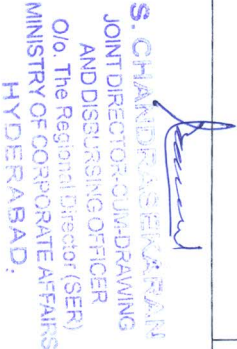 S. CHANDRASEKARAN
JOINT DIRECTOR-CUM-DRAWING
AND DISBURSING OFFICER
O/o. The Regional Director (SER)
MINISTRY OF CORPORATE AFFAIRS
HYDERABAD.